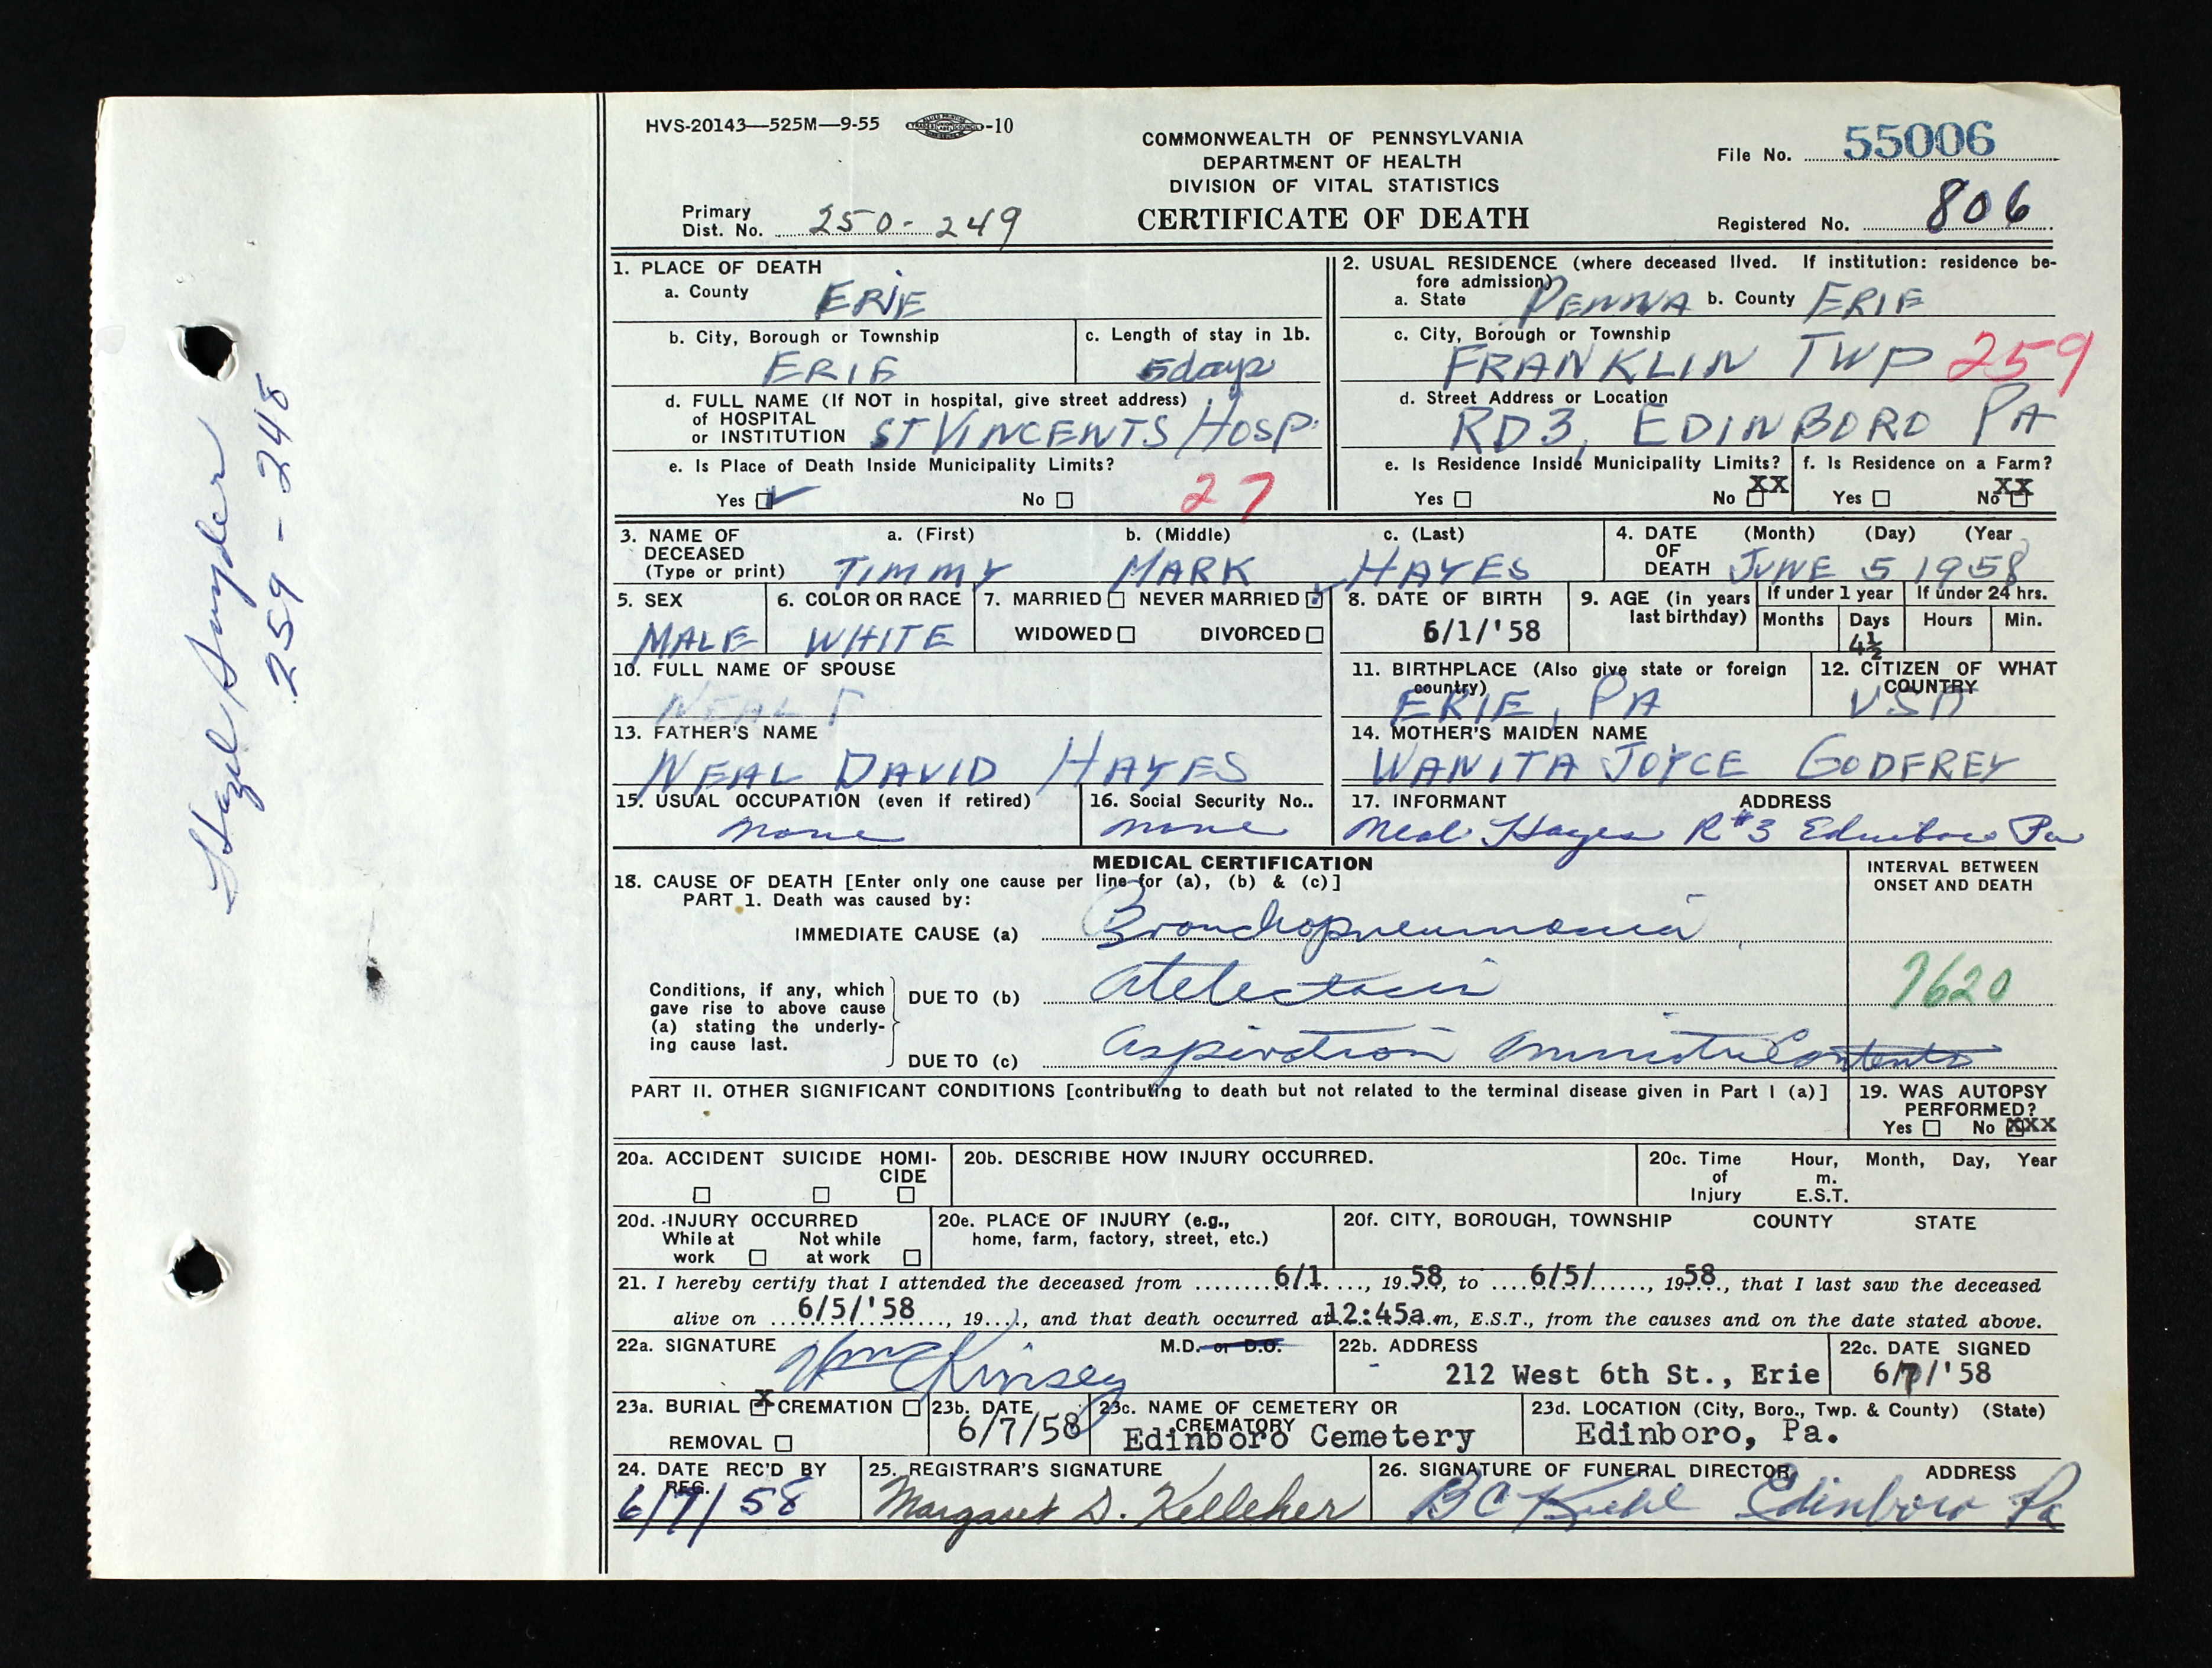 HVS-20143—525M—9-55 -10
COMMONWEALTH OF PENNSYLVANIA
DEPARTMENT OF HEALTH
DIVISION OF VITAL STATISTICS
CERTIFICATE OF DEATH
File No. 55006
Primary Dist. No. 250-249
Registered No. 806
1. PLACE OF DEATH
a. County ERIE
b. City, Borough or Township ERIE
c. Length of stay in 1b. 5 days
d. FULL NAME (If NOT in hospital, give street address)
of HOSPITAL
or INSTITUTION ST VINCENTS HOSP.
e. Is Place of Death Inside Municipality Limits?
Yes ✓ No 27
2. USUAL RESIDENCE (where deceased lived. If institution: residence be-
fore admission)
a. State PENNA b. County ERIE
c. City, Borough or Township
FRANKLIN TWP 259
d. Street Address or Location
RD3, EDINBORO PA
e. Is Residence Inside Municipality Limits? f. Is Residence on a Farm?
Yes No XX Yes No XX
3. NAME OF DECEASED (Type or print)
a. (First) b. (Middle) c. (Last)
TIMMY MARK HAYES
4. DATE OF DEATH (Month) (Day) (Year
JUNE 5 1958
5. SEX MALE
6. COLOR OR RACE WHITE
7. MARRIED NEVER MARRIED ✓
WIDOWED DIVORCED
8. DATE OF BIRTH 6/1/'58
9. AGE (in years last birthday)
If under 1 year If under 24 hrs.
Months Days Hours Min.
4½
10. FULL NAME OF SPOUSE
NEAL
11. BIRTHPLACE (Also give state or foreign country)
ERIE, PA
12. CITIZEN OF WHAT COUNTRY
USA
13. FATHER'S NAME
NEAL DAVID HAYES
14. MOTHER'S MAIDEN NAME
WANITA JOYCE GODFREY
15. USUAL OCCUPATION (even if retired)
none
16. Social Security No..
none
17. INFORMANT ADDRESS
Neal Hayes R#3 Edinboro Pa
MEDICAL CERTIFICATION
18. CAUSE OF DEATH [Enter only one cause per line for (a), (b) & (c)]
INTERVAL BETWEEN
ONSET AND DEATH
PART 1. Death was caused by:
IMMEDIATE CAUSE (a) Bronchopneumonia
Conditions, if any, which
gave rise to above cause
(a) stating the underly-
ing cause last.
DUE TO (b) Atelectasis
7620
DUE TO (c) Aspiration Contents
PART II. OTHER SIGNIFICANT CONDITIONS [contributing to death but not related to the terminal disease given in Part I (a)]
19. WAS AUTOPSY
PERFORMED?
Yes No XXX
20a. ACCIDENT SUICIDE HOMI-
CIDE
20b. DESCRIBE HOW INJURY OCCURRED.
20c. Time of Injury Hour, Month, Day, Year
m.
E.S.T.
20d. INJURY OCCURRED
While at work Not while at work
20e. PLACE OF INJURY (e.g.,
home, farm, factory, street, etc.)
20f. CITY, BOROUGH, TOWNSHIP COUNTY STATE
21. I hereby certify that I attended the deceased from 6/1, 1958, to 6/5/, 1958, that I last saw the deceased
alive on 6/5/'58, 19...., and that death occurred at 12:45a.m, E.S.T., from the causes and on the date stated above.
22a. SIGNATURE M.D. or D.O.
Wm C Kinsey
22b. ADDRESS
212 West 6th St., Erie
22c. DATE SIGNED
6/7/'58
23a. BURIAL X CREMATION
REMOVAL
23b. DATE
6/7/58
23c. NAME OF CEMETERY OR
CREMATORY
Edinboro Cemetery
23d. LOCATION (City, Boro., Twp. & County) (State)
Edinboro, Pa.
24. DATE REC'D BY
REG.
6/7/58
25. REGISTRAR'S SIGNATURE
Margaret D. Kelleher
26. SIGNATURE OF FUNERAL DIRECTOR ADDRESS
Edinboro Pa
Hazel Snyder
259-248